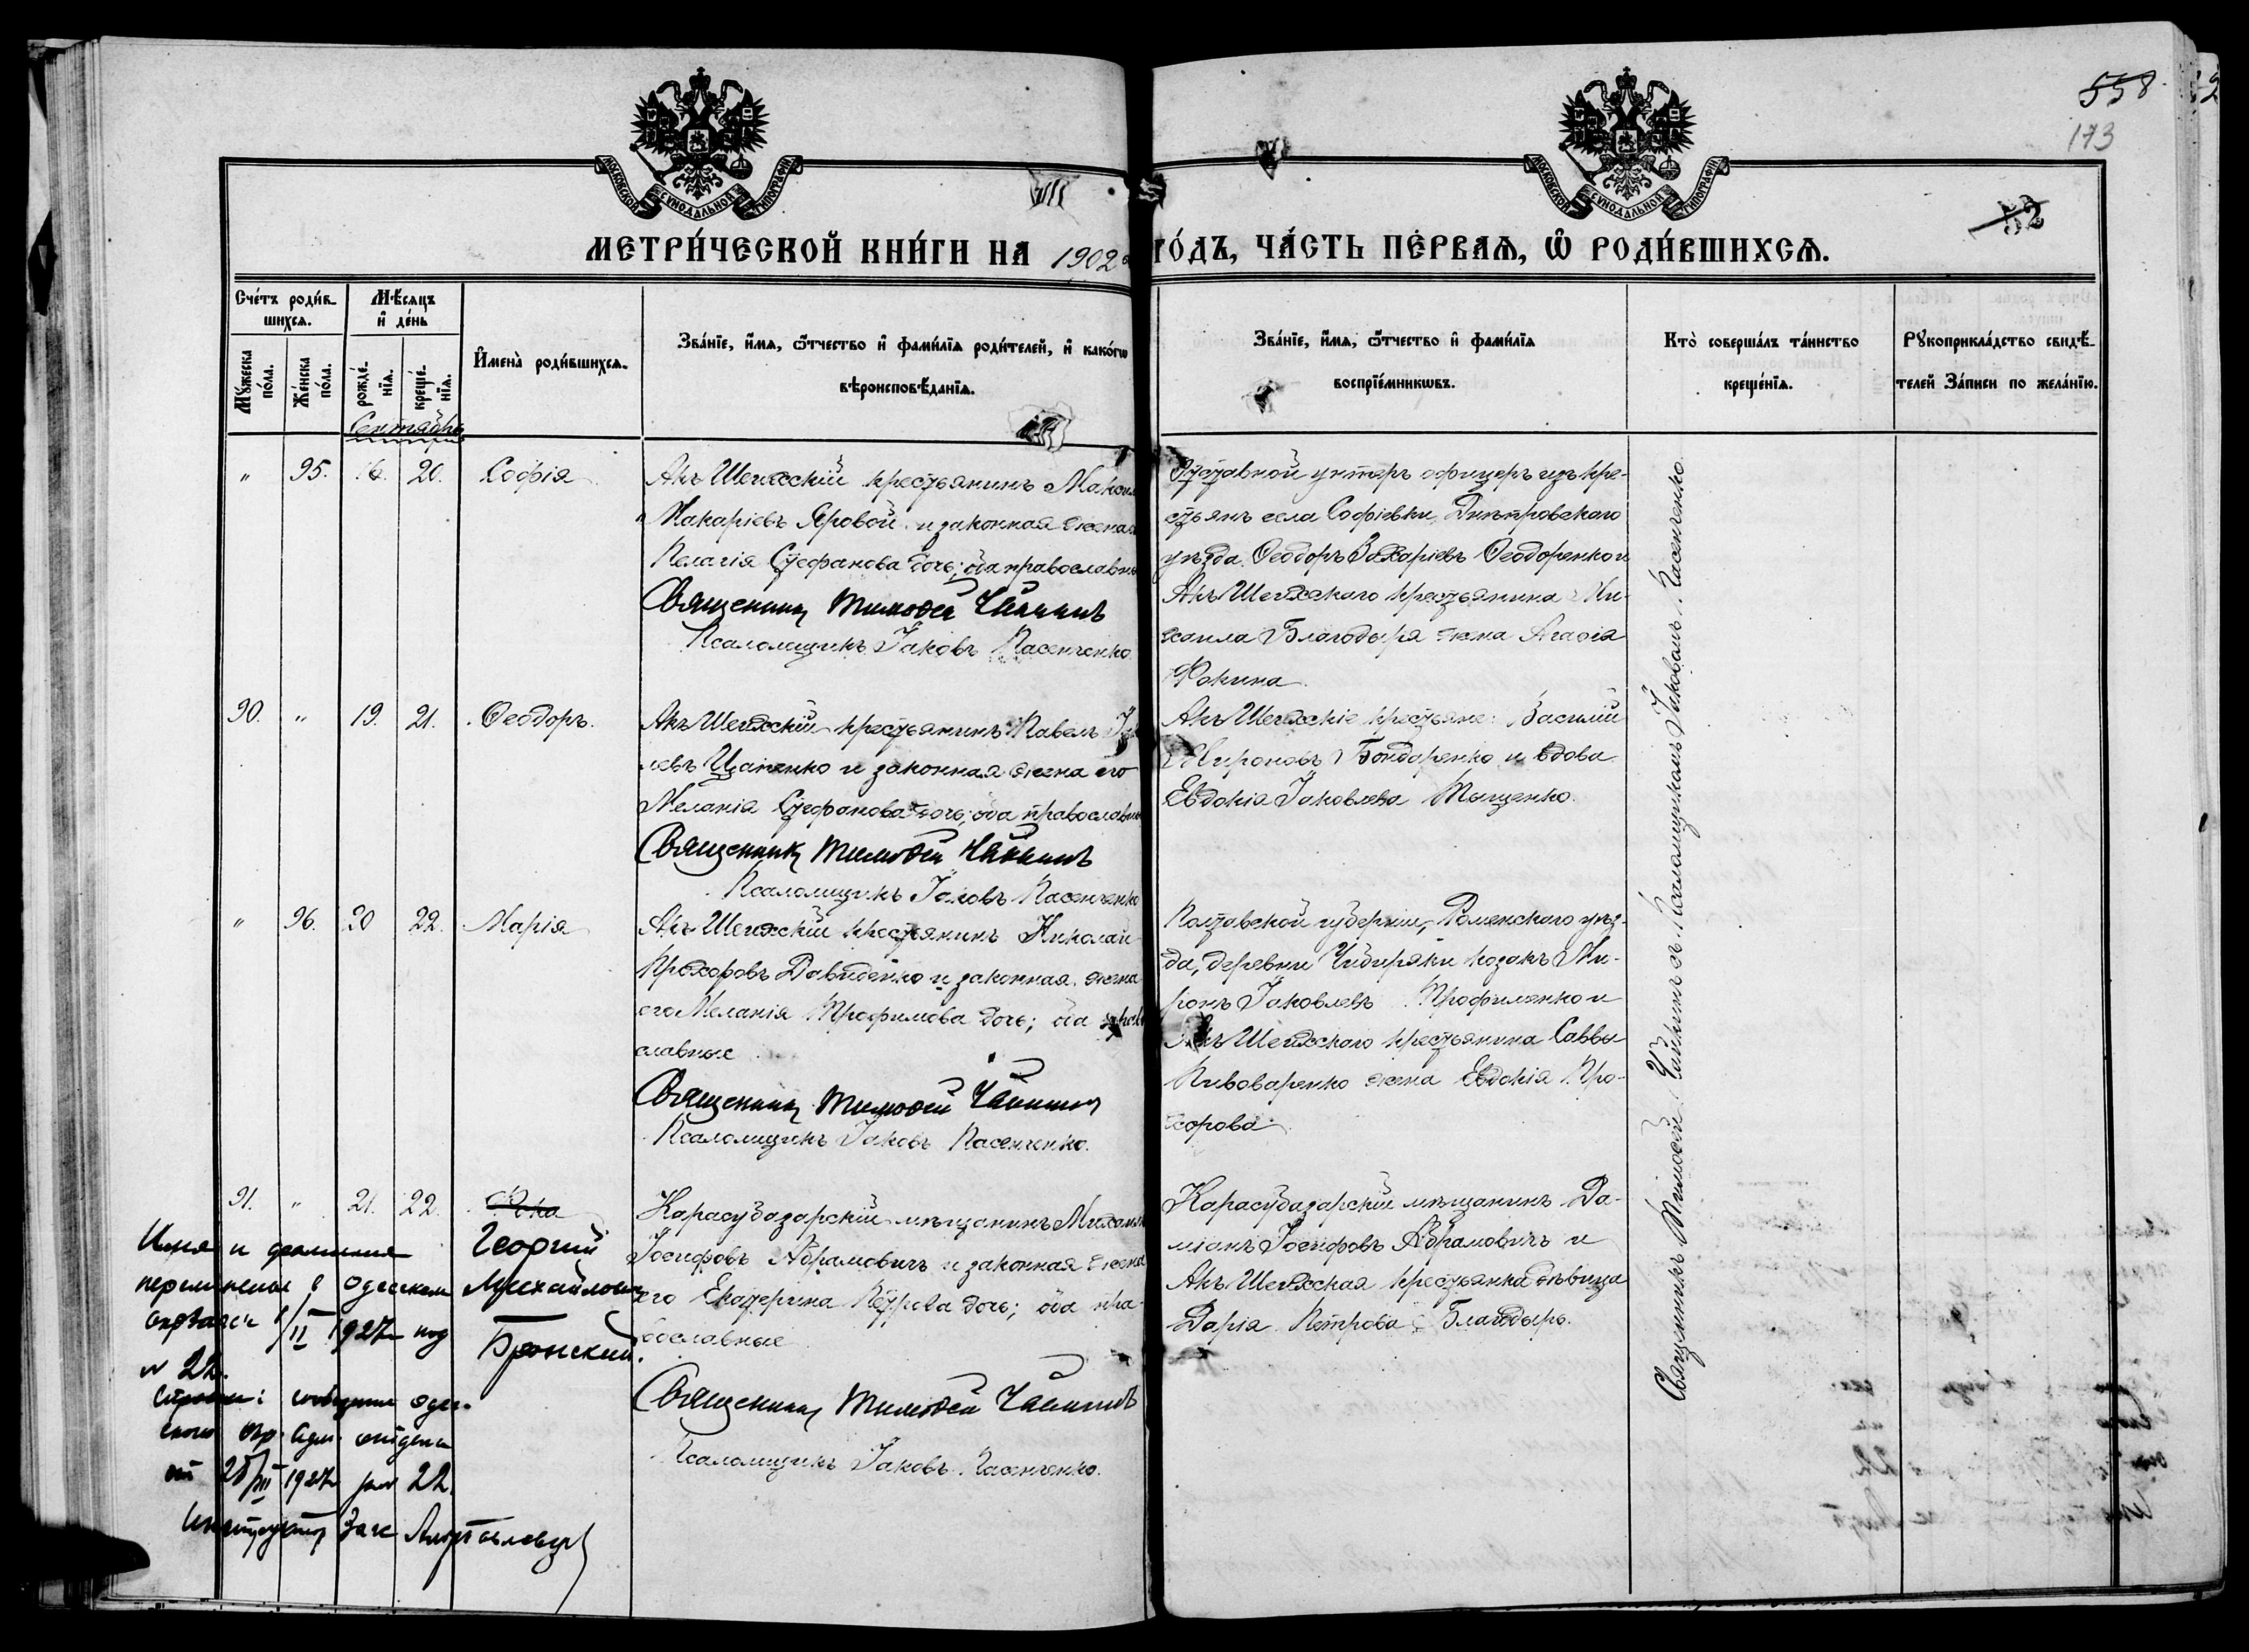 МОСКОВСКОЙ СѴНОДАЛЬНОЙ ТИПОГРАФІИ
МОСКОВСКОЙ СѴНОДАЛЬНОЙ ТИПОГРАФІИ
558
173
52
МЕТРИ́ЧЕСКОЙ КНИ́ГИ НА 1902 ГО́ДЪ, ЧА́СТЬ ПЕ́РВАѦ, Ѡ҆ РОДИ́ВШИХСѦ.
Сче́тъ роди́в-
шихсѧ.
Мѹ́жеска по́ла.
Же́нска по́ла.
Мѣ́сѧцъ
и҆ де́нь
рожде́-
нїѧ.
креще́-
нїѧ.
И҆мена̀ роди́вшихсѧ.
Зва́нїе, и҆́мѧ, ѻ҆́тчество и҆ фами́лїѧ роди́телей, и҆ како́гѡ
вѣроисповѣ́данїѧ.
Зва́нїе, и҆́мѧ, ѻ҆́тчество и҆ фами́лїѧ
воспрїе́мникѡвъ.
Кто̀ соверша́лъ та́инство
креще́нїѧ.
Рꙋкоприкла́дство свидѣ́-
телей За́писи по жела́нїю.
Сентябрь
" 95. 16. 20. Софія
Акъ Шеихскій крестьянинъ
Макаріевъ Яровой и законная жена
Пелагія Стефанова дочь; оба православн
Священникъ Тимоѳей
Псаломщикъ Іаковъ Пасенченко.
Отставной унтеръ офицеръ изъ кре-
стьянъ села Софіевки, Днѣпровскаго
уѣзда Ѳеодоръ Захаріевъ Ѳеодоренко и
Акъ Шеихскаго крестьянина Ми-
хаила Благодыря жена Агаѳія
Фокина.
90. " 19. 21. Ѳеодоръ.
Акъ Шеихскій крестьянинъ Павелъ
левъ Цапенко и законная жена его
Меланія Стефанова дочь; оба православн
Священникъ Тимоѳей
Псаломщикъ Іаковъ Пасенченко
Акъ Шеихскіе крестьяне: Василій
Мироновъ Бондаренко и вдова
Евдокія Іаковлева Тыщенко.
" 96. 20 22. Марія
Акъ Шеихскій крестьянинъ Николай
Прохоровъ Давиденко и законная жена
его Меланія Трофимова дочь; оба прав
славные
Священникъ Тимоѳей
Псаломщикъ Іаковъ Пасенченко.
Полтавской губерніи, Роменскаго уѣз-
да, деревни Чибиряки козакъ Ми-
ронъ Іаковлевъ Трофименко и
Акъ Шеихскаго крестьянина Саввы
Пивоваренко жена Евдокія Про-
хорова.
91. " 21. 22.
Георгий
Михайлович
Бронский.
Карасубазарскій мѣщанинъ Михаилъ
Іосифовъ Абрамовичъ и законная жена
его Екатерина Петрова дочь; оба пра-
вославные
Священникъ Тимоѳей
Псаломщикъ Іаковъ Пасенченко.
Карасубазарскій мѣщанинъ Да-
міанъ Іосифовъ Абрамовичъ и
Акъ Шеихская крестьянка дѣвица
Дарія Петрова Благодырь.
Имя и фамилия
переменены в Одесском
II 1927 под
№ 22.
сообщение Одес-
ского Окр. Адм. отдела
от 28/III 1927 за № 22.
Загс
Священникъ Тимоѳей съ Псаломщикомъ Іаковомъ Пасенченко.